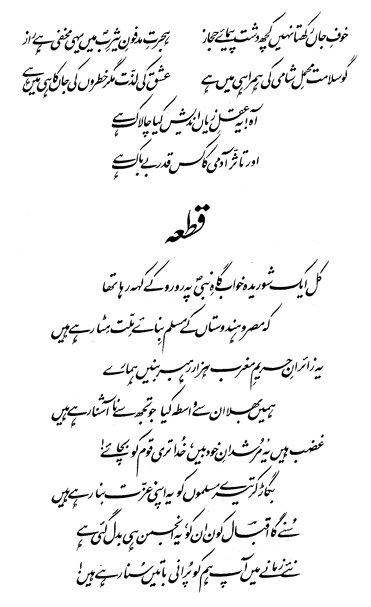 خوفِ جاں رکھتا نہیں کچھ دشت پیمائے حجاز ہجرتِ مدفونِ یثربؐ میں یہی مخفی ہے راز
گو سلامت محملِ شامی کی ہمراہی میں ہے عشق کی لذّت مگر خطروں کی جاں کاہی میں ہے
آہ! یہ عقلِ زیاں اندیش کیا چالاک ہے
اور تاثّر آدمی کا کس قدر بے باک ہے
قطعہ
کل ایک شوریدہ خواب گاہِ نبیؐ پہ رو رو کے کہہ رہا تھا
کہ مصر و ہندوستاں کے مسلم بنائے ملّت مٹا رہے ہیں
یہ زائرانِ حریمِ مغرب ہزار رہبر بنیں ہمارے
ہمیں بھلا ان سے واسطہ کیا جو تجھ سے نا آشنا رہے ہیں
غضب ہیں یہ مُرشدانِ خود بیں، خُدا تری قوم کو بچائے!
بگاڑ کر تیرے مسلموں کو یہ اپنی عزّت بنا رہے ہیں
سُنے گا اقبالؔ کون ان کو، یہ انجمن ہی بدل گئی ہے
نئے زمانے میں آپ ہم کو پُرانی باتیں سُنا رہے ہیں!